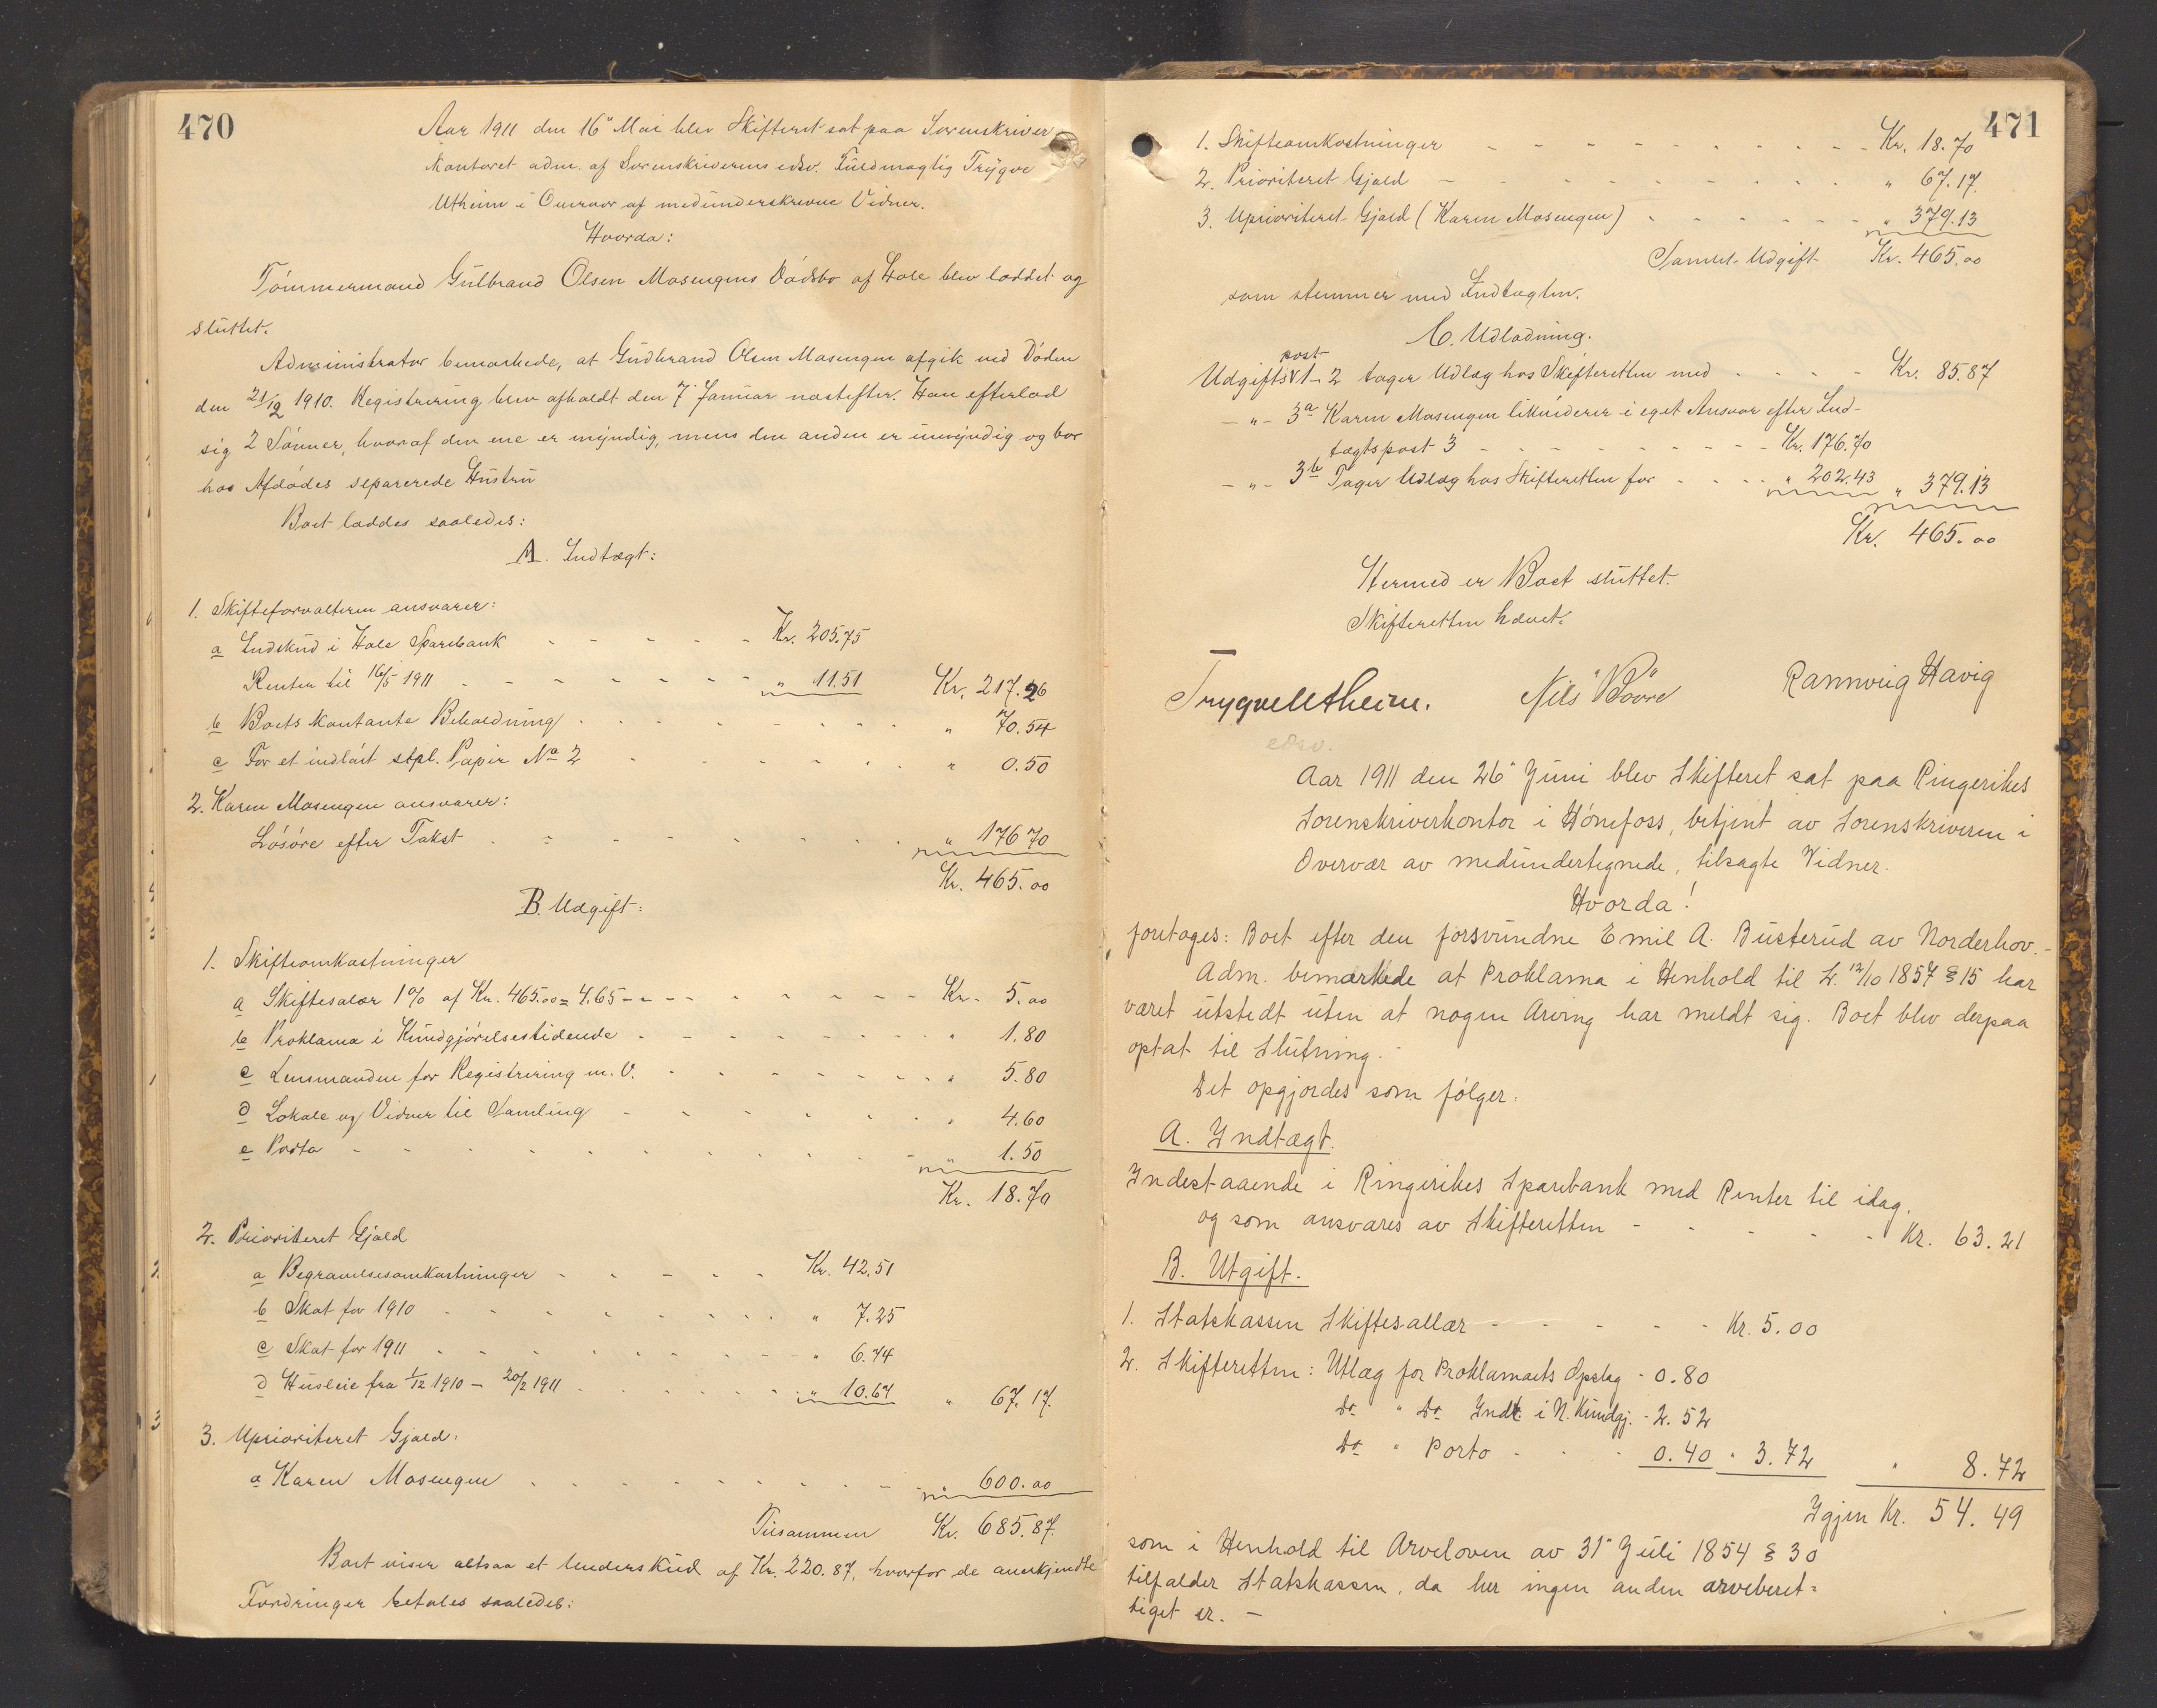 470
Aar 1911 den 16" Mai blev Skifteret sat paa Sorenskriver
kontoret adm. af Sorenskriverens edsv. Fuldmægtig Trygve
Utheim i Overvær af medunderskrevne Vidner.
Hvorda:
Tömmermand Gulbrand Olsen Mosengens Dödsbo af Hole blev loddet og
sluttet.
Administrator bemærkede, at Gudbrand Olsen Mosengen afgik ved Döden
den 21/12 1910. Registrering blev afholdt den 7' Januar næstefter. Han efterlod
sig 2 Sönner, hvoraf den ene er myndig, mens den anden er umyndig og bor
hos Afdödes separerede Hustru
Boet loddes saaledes:
A. Indtægt:
1. Skifteforvalteren ansvarer:
a Indskud i Hole Sparebank - - - - - Kr. 205.75
Renter til 16/5 1911 - - - - - - " 11.51 Kr. 217.26
b Boets kontante Beholdning . . . . . . . " 70.54
c For et indlöst stpl. Papir No 2 - - - - - " 0.50
2. Karen Mosengen ansvarer:
Lösöre efter Takst . - - - - - . . " 176 70
Kr. 465.00
B. Udgift:
1. Skifteomkostninger
a Skiftesalær 1% af Kr. 465.00 = 4.65 - - - - - - - Kr. 5.00
b Proklama i Kundgjörelsestidende - - - - - - - " 1.80
c Lensmanden for Registrering m. V. - - - - - - " 5.80
d Lokale og Vidner til Samling - - - - - - " 4.60
e Porto - - - - - - - - - " 1.50
Kr. 18.70
2. Prioriteret Gjæld
a Begravelsesomkostninger - - - - - Kr. 42.51
b Skat for 1910 - - - - - - - " 7.25
c Skat for 1911 - - - - - - - " 6.74
d Husleie fra 1/12 1910 - 20/2 1911 - - - - - " 10.67 " 67.17.
3. Uprioriteret Gjæld:
a Karen Mosengen - - - - - - - - " 600.00
Tilsammen Kr. 685.87.
Boet viser altsaa et Underskud af Kr. 220.87, hvorfor de anerkjendte
Fordringer betales saaledes:
471
1. Skifteomkostninger - - - - - - - - - Kr. 18.70
2. Prioriteret Gjæld - - - - - - - - " 67.17.
3. Uprioriteret Gjæld (Karen Mosengen) - - - - - - " 379.13
Samlet Udgift Kr. 465.00
som stemmer med Indtægten.
C. Udlodning.
post
Udgifts v 1-2 tager Udlæg hos Skifteretten med - - - - Kr. 85.87
- " - 3a Karen Mosengen likviderer i eget Ansvar efter Ind-
tægtspost 3 - - - - - - - Kr. 176.70
- " - 3b Tager Udlæg hos Skifteretten for - - - - " 202.43 " 379.13
Kr. 465.00
Hermed er Boet sluttet.
Skifteretten hævet.
Trygve Utheim. Nils Boore Rannveig Havig
edsv.
Aar 1911 den 26" Juni blev Skifteret sat paa Ringerikes
Sorenskriverkontor i Hönefoss, betjent av Sorenskriveren i
Overvær av medundertegnede, tilsagte Vidner.
Hvorda!
foretages: Boet efter den forsvundne Emil A. Busterud av Norderhov. -
Adm. bemærkede at Proklama i Henhold til L. 12/10 1857 § 15 har
været utstedt uten at nogen Arving har meldt sig. Boet blev derpaa
optat til Slutning. -
Det opgjordes som fölger:
A. Indtægt.
Indestaaende i Ringerikes Sparebank med Renter til idag,
og som ansvares av Skifteretten - - - - - Kr. 63.21
B. Utgift.
1. Statskassen Skiftesallær - - - - - Kr. 5.00
2. Skifteretten: Utlæg for Proklamaets Opslag - 0.80
Do " Do Indt. i N. Kundgj. - 2.52
Do " Porto - - - 0.40 " 3.72 " 8.72
Igjen Kr. 54.49
som i Henhold til Arveloven av 31" Juli 1854 § 30
tilfalder Statskassen, da her ingen anden arveberet=
tiget er. -